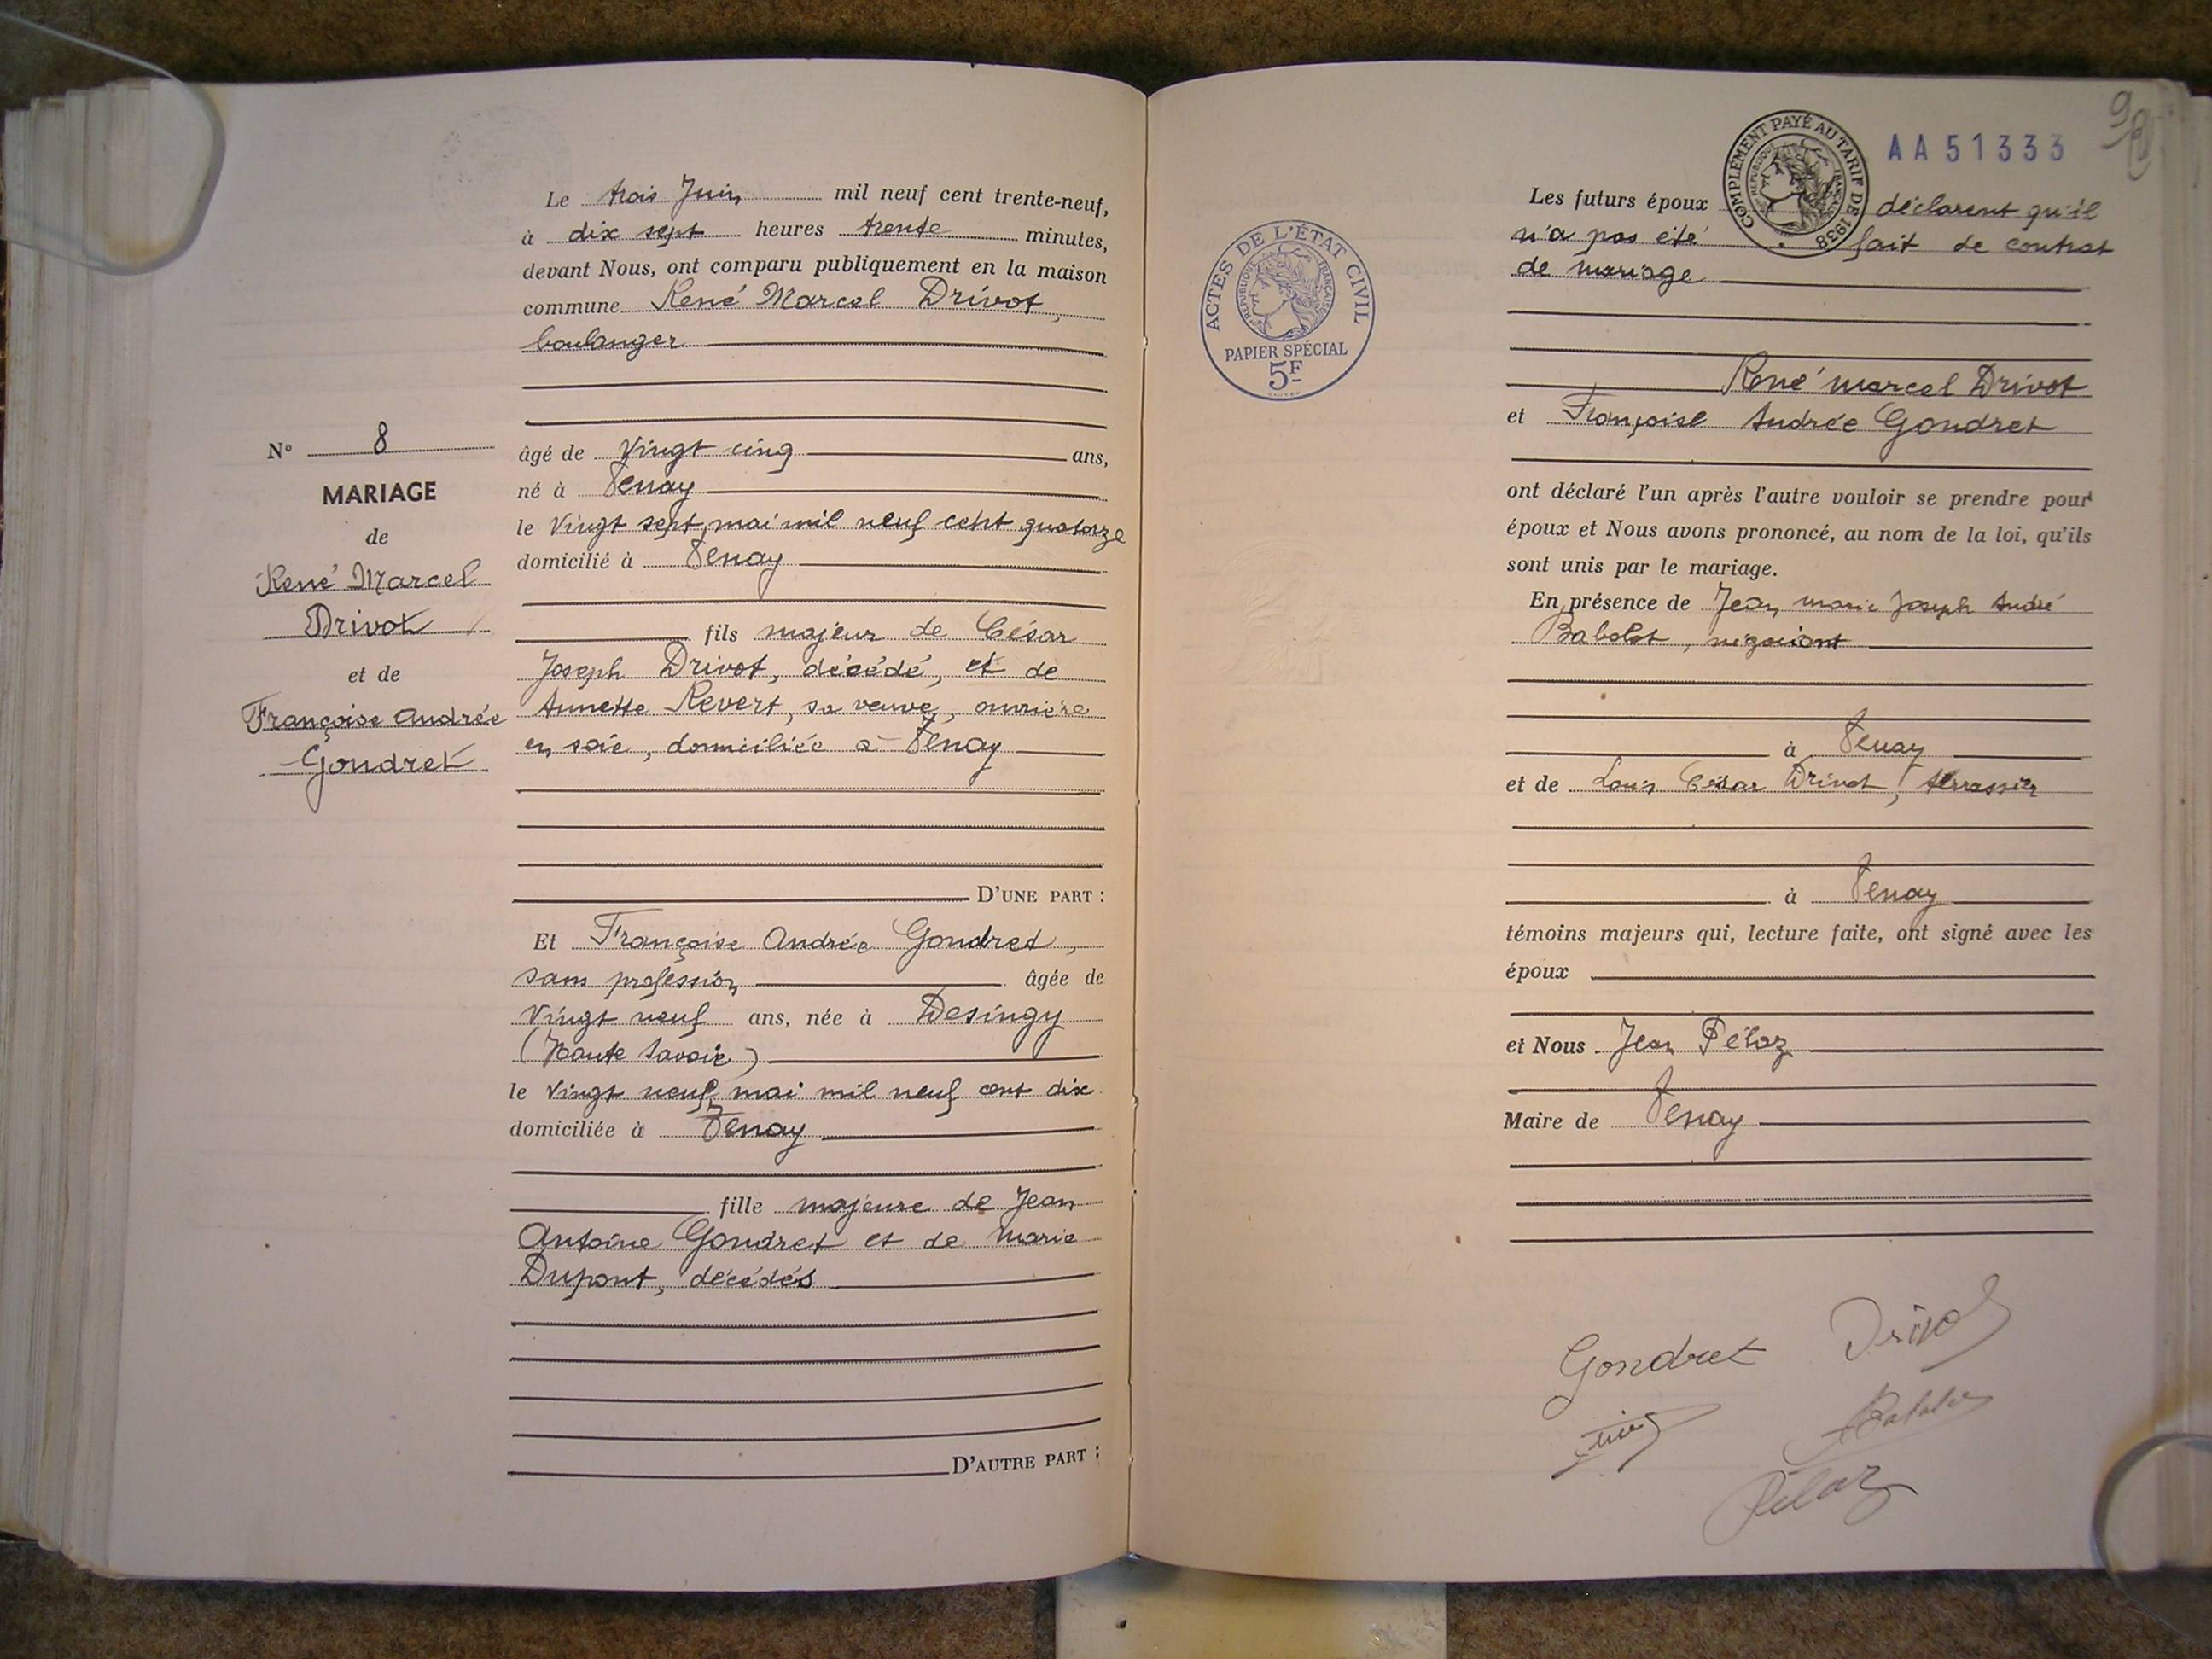 Le trois Juin mil neuf cent trente-neuf,
à dix sept heures trente minutes,
devant Nous, ont comparu publiquement en la maison
commune René Marcel Drivot,
boulanger
N° 8
MARIAGE
de
René Marcel
Drivot
et de
Françoise Andrée
Gondret
âgé de Vingt cinq ans,
né à Tenay
le Vingt sept mai mil neuf cent quatorze
domicilié à Tenay
fils majeur de César
Joseph Drivot, décédé, et de
Annette Revert, sa veuve, ouvrière
en soie, domiciliée à Tenay
D'UNE PART :
Et Françoise Andrée Gondret,
sans profession âgée de
Vingt neuf ans, née à Desingy
(Haute Savoie)
le Vingt neuf mai mil neuf cent dix
domiciliée à Tenay
fille majeure de Jean
Antoine Gondret et de Marie
Dupont, décédés
D'AUTRE PART :
ACTES DE L'ÉTAT CIVIL
RÉPUBLIQUE FRANÇAISE
PAPIER SPÉCIAL
5F
COMPLÉMENT PAYÉ AU TARIF DE 1938
RÉPUBLIQUE FRANÇAISE
AA51333
Les futurs époux déclarent qu'il
n'a pas été fait de contrat
de mariage
René Marcel Drivot
et Françoise Andrée Gondret
ont déclaré l'un après l'autre vouloir se prendre pour
époux et Nous avons prononcé, au nom de la loi, qu'ils
sont unis par le mariage.
En présence de Jean Marie Joseph André
Babolat, négociant
à Tenay
et de Louis César Drivot, terrassier
à Tenay
témoins majeurs qui, lecture faite, ont signé avec les
époux
et Nous Jean Pélaz
Maire de Tenay
Gondret Drivot
Pélaz